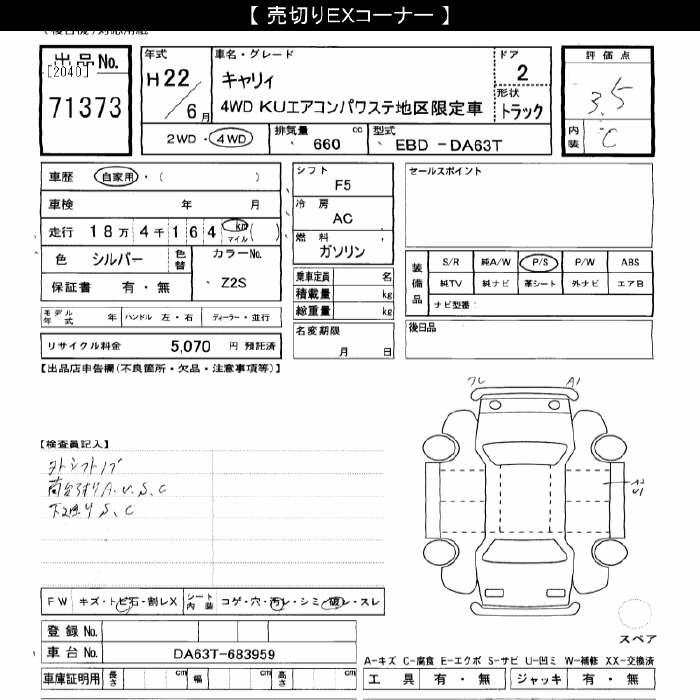 【 売切りEXコーナー 】
出品No.
[2040]
71373
年式
H22/6月
車名・グレード
キャリィ
4WD KUエアコンパワステ地区限定車
ドア
2
形状
トラック
2WD・4WD
排気量 660 cc
型式 EBD -DA63T
評価点
3.5
内装 C
車歴 自家用・( )
車検 年 月
走行 18万4千164 km マイル ( )
色 シルバー
色替
カラーNo.
Z2S
保証書 有・無
モデル年式 年
ハンドル 左・右
ディーラー・並行
リサイクル料金 5,070 円 預託済
シフト
F5
冷房
AC
燃料
ガソリン
乗車定員 名
積載量 kg
総重量 kg
名変期限
月 日
セールスポイント
装備品
S/R 純A/W P/S P/W ABS
純TV 純ナビ 革シート 外ナビ エアB
ナビ型番:
後日品
【出品店申告欄(不良箇所・欠品・注意事項等)】
【検査員記入】
外シフトノブ
荷台サビA、U、S、C
下廻りS、C
ワレ
A1
A2
U1
スペア
FW キズ・トビ石・割レX
シート内装 コゲ・穴・汚レ・シミ・破レ・スレ
登録No.
車台No. DA63T-683959
車庫証明用 長さ cm 幅 cm 高さ cm
A-キズ C-腐食 E-エクボ S-サビ U-凹ミ W-補修 XX-交換済
工具 有・無 ジャッキ 有・無